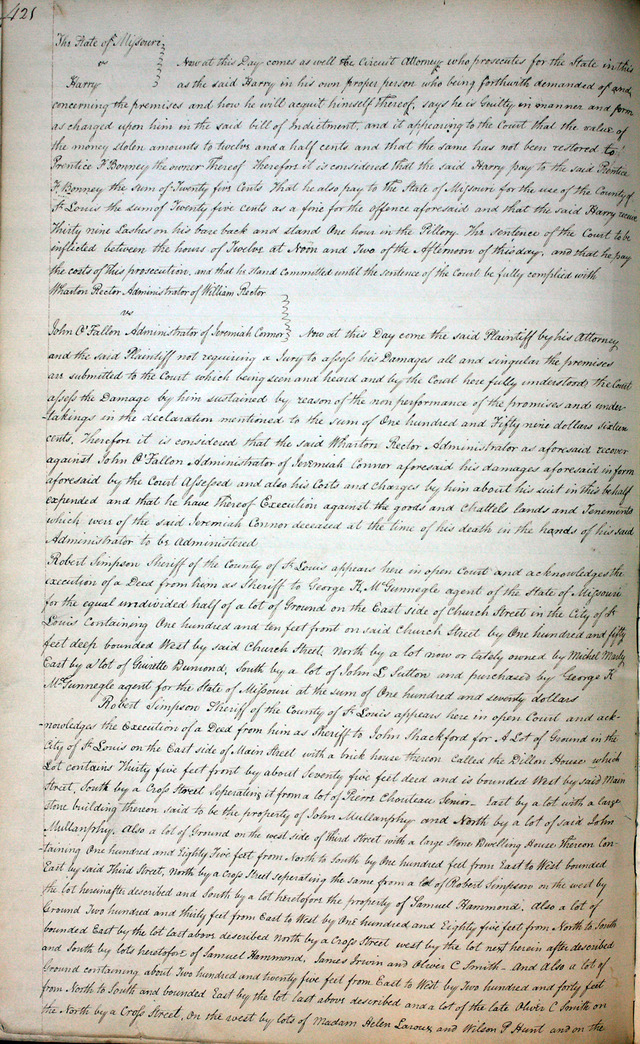 421
The State of Missouri
vs
Now at this Day comes as well the Circuit Attorney who prosecutes for the State in this
Harry
as the said Harry in his own proper person who being forthwith demanded of and
concerning the premises and how he will acquit himself thereof, says he is Guilty in manner and form
as charged upon him in the said bill of Indictment, and it appearing to the Court that the value of
the money stolen amounts to twelve and a half cents and that the same has not been restored to
Prentice F Bonney the owner thereof Therefore it is considered that the said Harry pay to the said Prentice
F Bonney the sum of Twenty five Cents That he also pay to the State of Missouri for the use of the County of
St Louis the sum of Twenty five cents as a fine for the offence aforesaid and that the said Harry receive
Thirty nine Lashes on his bare back and stand One hour in the Pillory. The sentence of the Court to be
inflicted between the hours of Twelve at Noon and Two of the Afternoon of this day, and that he pay
the costs of this prosecution, and that he stand committed until the sentence of the Court be fully complied with
Wharton Rector Administrator of William Rector
vs
John O'Fallon Administrator of Jeremiah Connor Now at this Day come the said Plaintiff by his Attorney
and the said Plaintiff not requiring a Jury to assess his Damages all and singular the premises
are submitted to the Court which being seen and heard and by the Court here fully understood, the Court
assess the Damage by him sustained by reason of the non performance of the promises and under-
-takings in the declaration mentioned to the sum of One hundred and Fifty nine dollars sixteen
cents. Therefore it is considered that the said Wharton Rector Administrator as aforesaid recover
against John O'Fallon Administrator of Jeremiah Connor aforesaid his damages aforesaid in form
aforesaid by the Court Assessed and also his Costs and charges by him about his suit in this behalf
expended and that he have thereof Execution against the goods and Chattels lands and Tenements
which were of the said Jeremiah Connor deceased at the time of his death in the hands of his said
Administrator to be Administered
Robert Simpson Sheriff of the County of St Louis appears here in open Court and acknowledges the
execution of a Deed from him as Sheriff to George K. McGunnegle agent of the State of Missouri
for the equal undivided half of a lot of Ground on the East side of Church Street in the City of St
Louis Containing One hundred and ten feet front on said Church Street by One hundred and fifty
feet deep bounded West by said Church Street, North by a lot now or lately owned by Michel Marly
East by a lot of Guzette Dumond, South by a lot of John L Sutton and purchased by George K
McGunnegle agent for the State of Missouri at the sum of One hundred and seventy dollars
Robert Simpson Sheriff of the County of St Louis appears here in open Court and ack-
-nowledges the Execution of a Deed from him as Sheriff to John Shackford for A Lot of Ground in the
City of St Louis on the East side of Main Street with a brick house thereon Called the Dillon House which
Lot contains Thirty five feet front by about Seventy five feet deed and is bounded West by said Main
Street, South by a Cross Street Seperating it from a lot of Pierre Chouteau Senior - East by a lot with a large
stone building thereon said to be the property of John Mullanphy and North by a lot of said John
Mullanphy. Also a lot of Ground on the west side of Third Street with a large Stone Dwelling House thereon Con-
-taining One hundred and Eighty Five feet from North to South by One hundred feet from East to West bounded
East by said Third Street, North by a Cross Street seperating the same from a lot of Robert Simpson on the west by
the lot hereinafter described and South by a lot heretofore the property of Samuel Hammond. Also a lot of
Ground Two hundred and thirty feet from East to West by One hundred and Eighty five feet from North to South
bounded East by the lot last above described North by a Cross Street west by the lot next herein after described
and South by lots heretofore of Samuel Hammond, James Irwin and Oliver C Smith - And also a lot of
Ground containing about Two hundred and twenty five feet from East to West by Two hundred and forty feet
from North to South and bounded East by the lot last above described and a lot of the late Oliver C Smith on
the North by a Cross Street, On the west by lots of Madam Helen Laroux and Wilson P Hunt and on the